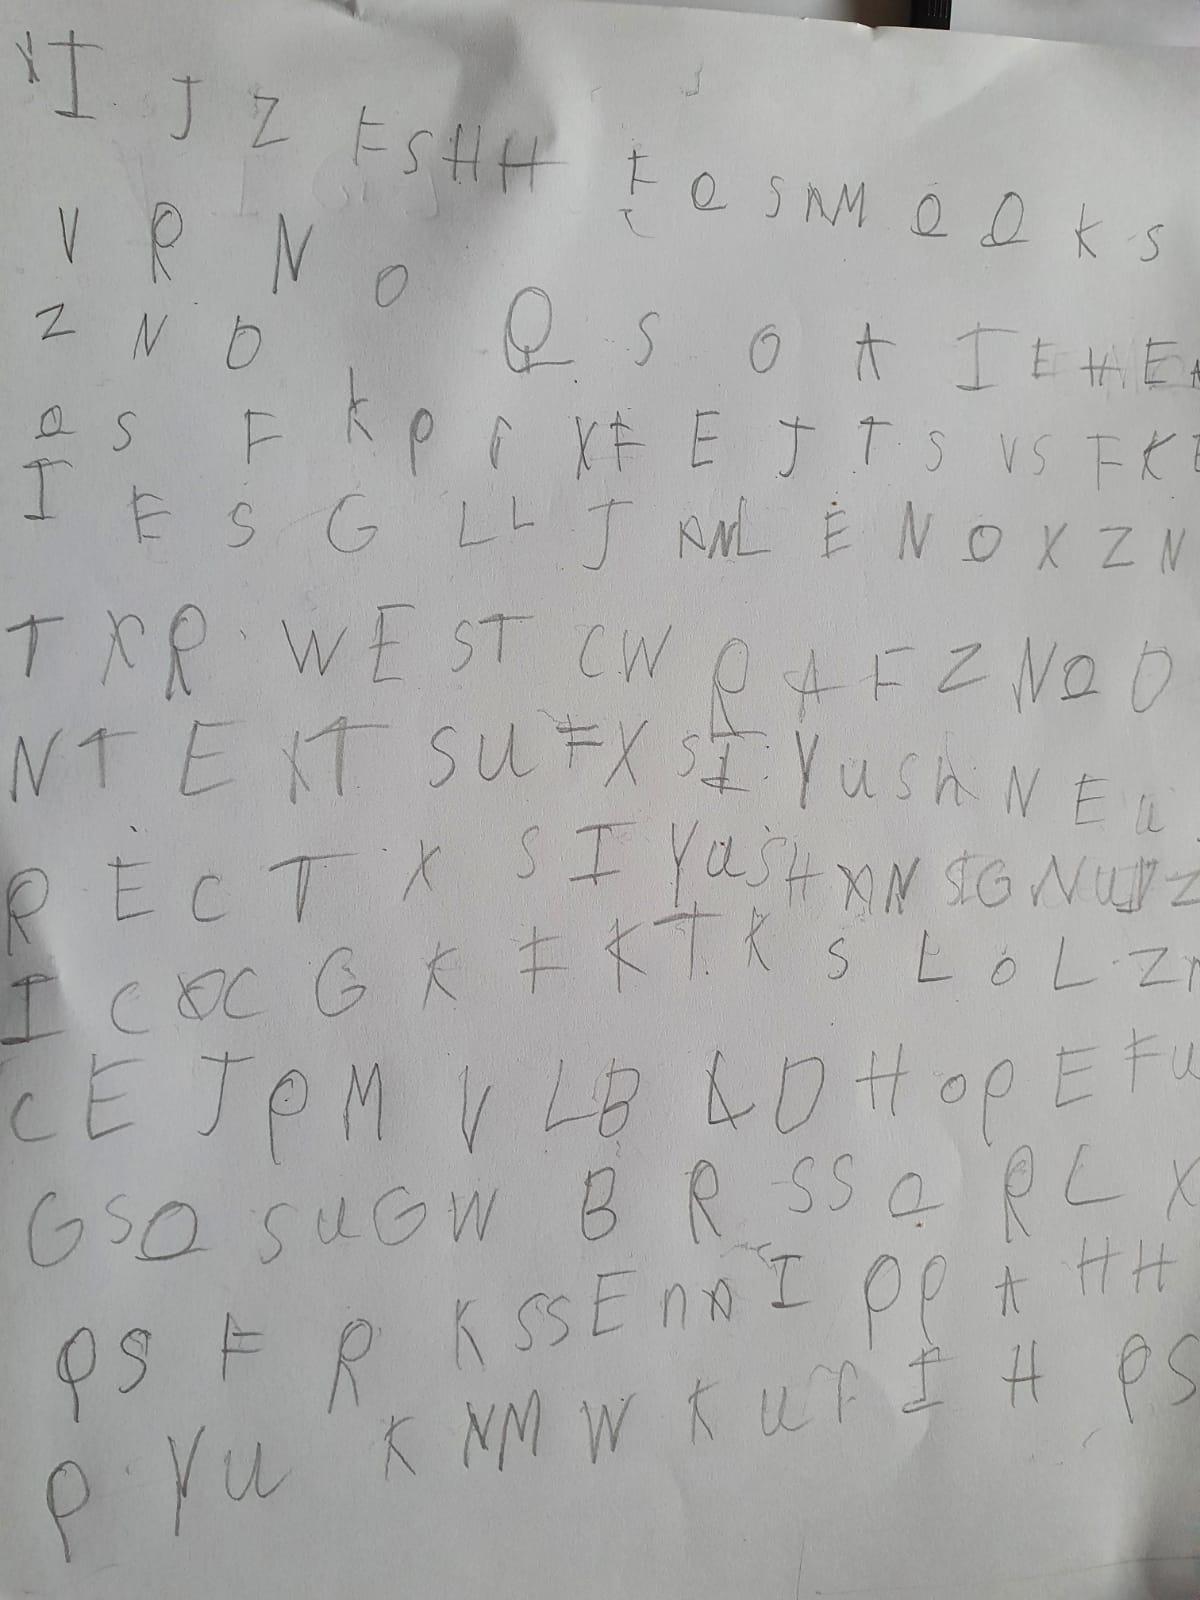 X I J Z F S H H F Q S A M Q Q K S
V R N O
Z N O Q S O A I E H E
Q S F K P X F E J T S V S F K
I E S G L L J A N L E N O X Z N
T X R W E S T C W R A F Z N Q O
N T E X T S U F X S I Y U S h N E u
R E C T X S I Y U S H X A N S I G N U Z
I C O C G K F K T K S L O L Z
C E J P M V L B L D H O P E F U
G S Q S U G W B R S S Q R L X
P S F R K S S E n A I P P A H H
P Y U K N M W K U F I H P S